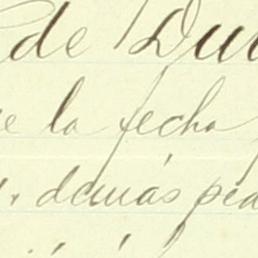 de Du
e la fecha
demás ped